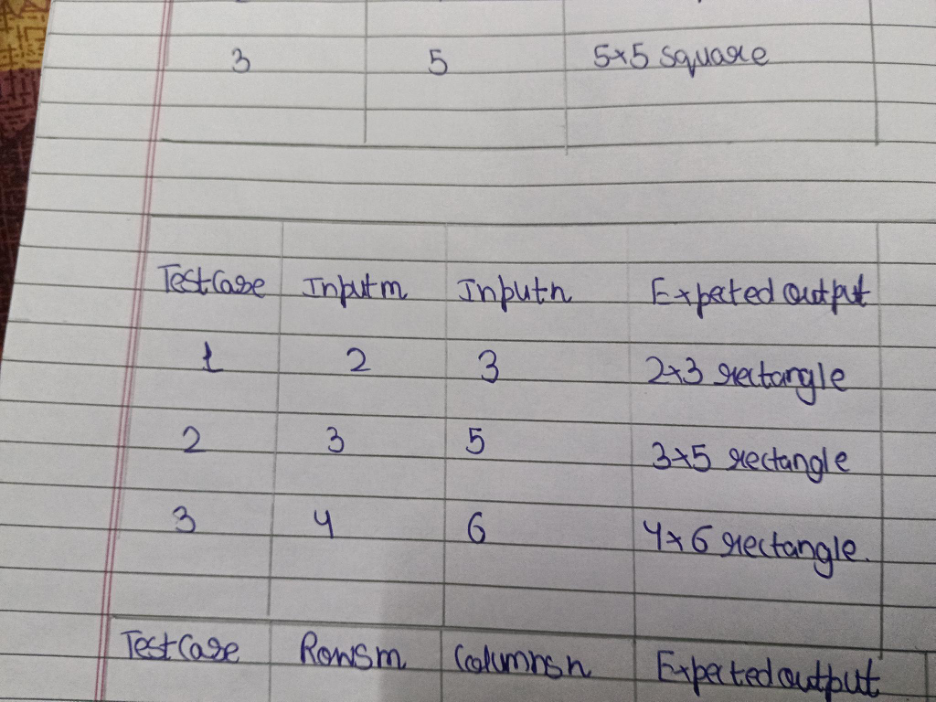 3 5 5×5 square
TestCase Inputm Inputn Expected output
1 2 3 2×3 rectangle
2 3 5 3×5 rectangle
3 4 6 4×6 rectangle.
TestCase Rowsm Columnsn Expected output